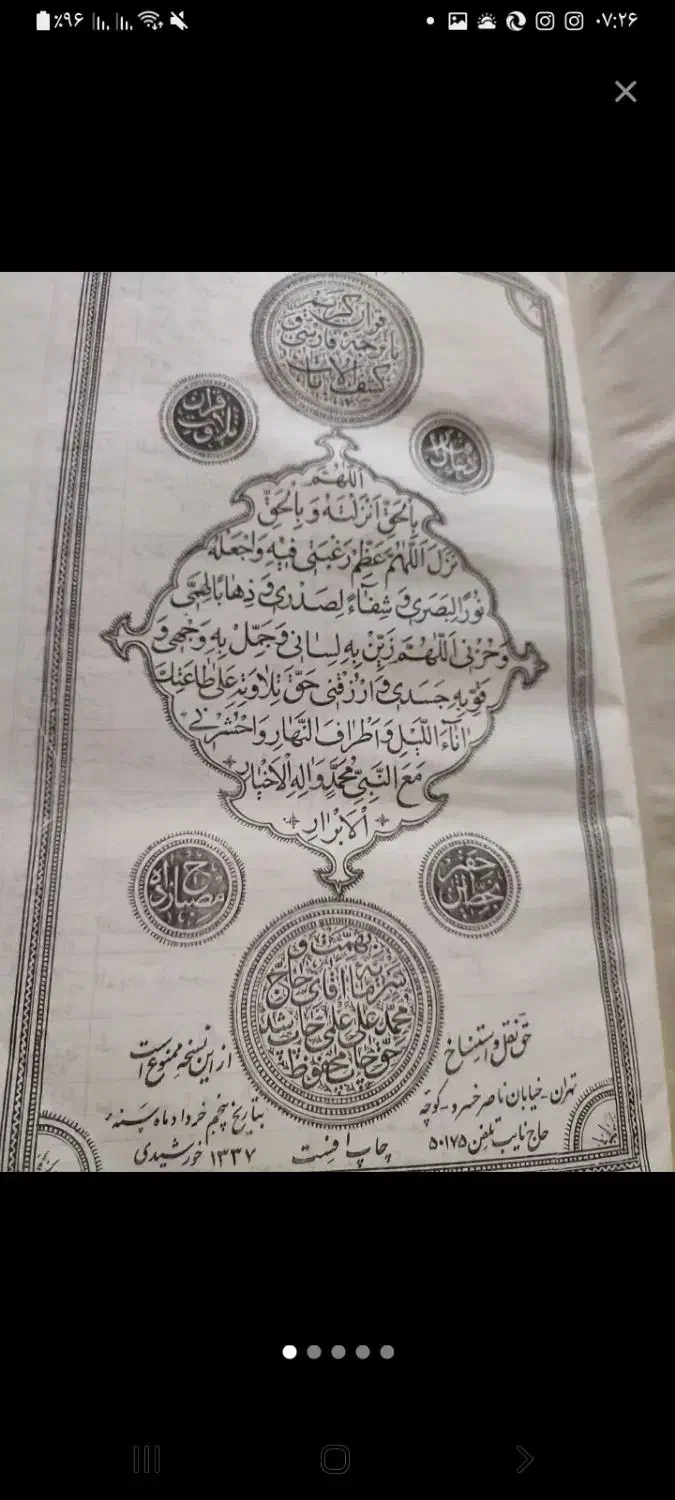 ٪۹۶
۰۷:۲۶
قرآن کریم
با ترجمه فارسی و
کشف الآیات
تلاوت قرآن
اللّهُمَّ
بِالْحَقِّ اَنْزَلْتَهُ وَ بِالْحَقِّ
نَزَلَ اَللّهُمَّ عَظِّمْ رَغْبَتی فیهِ وَاجْعَلْهُ
نُورًا لِبَصَری وَ شِفاءً لِصَدْری وَ ذِهابًا لِهَمّی
وَ حُزْنی اَللّهُمَّ زَیِّنْ بِهِ لِسانی وَ جَمِّلْ بِهِ وَجْهی وَ
قَوِّ بِهِ جَسَدی وَ ارْزُقْنی حَقَّ تِلاوَتِهِ عَلی طاعَتِكَ
اناءَ اللَّیْلِ وَ اَطْرافَ النَّهارِ وَ احْشُرْنی
مَعَ النَّبِیِّ مُحَمَّدٍ وَ الِهِ الْاَخْیارِ
الْاَبْرارِ
بهمت و
سرمایه آقای حاج
محمد علی علمی چاپ شد
حق چاپ محفوظ
حق نقل و استنساخ
از این نسخه ممنوع است
تهران - خیابان ناصر خسرو - کوچه
حاج نایب تلفن ۵۰۱۷۵
بتاریخ پنجم خرداد ماه سنه
۱۳۳۷ خورشیدی
چاپ افست